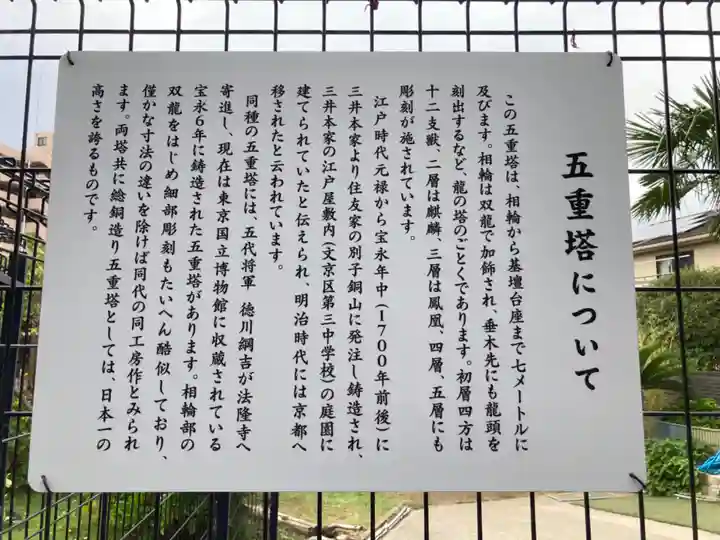 五重塔について
この五重塔は、相輪から基壇台座まで七メートルに
及びます。相輪は双龍で加飾され、垂木先にも龍頭を
刻出するなど、龍の塔のごとくであります。初層四方は
十二支獣、二層は麒麟、三層は鳳凰、四層、五層にも
彫刻が施されています。
江戸時代元禄から宝永年中(1700年前後)に
三井本家より住友家の別子銅山に発注し鋳造され、
三井本家の江戸屋敷内(文京区第三中学校)の庭園に
建てられていたと伝えられ、明治時代には京都へ
移されたと云われています。
同種の五重塔には、五代将軍 徳川綱吉が法隆寺へ
寄進し、現在は東京国立博物館に収蔵されている
宝永6年に鋳造された五重塔があります。相輪部の
双龍をはじめ細部彫刻もたいへん酷似しており、
僅かな寸法の違いを除けば同代の同工房作とみられ
ます。両塔共に総銅造り五重塔としては、日本一の
高さを誇るものです。